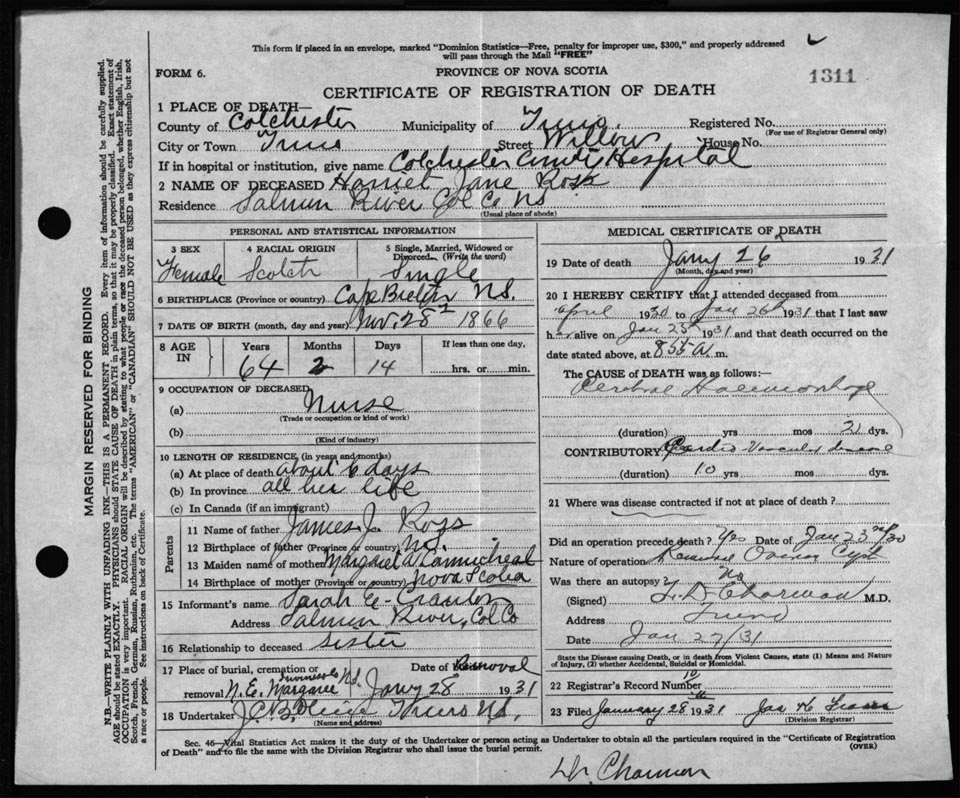 This form if placed in an envelope, marked "Dominion Statistics—Free, penalty for improper use, $300," and properly addressed
will pass through the Mail "FREE"
FORM 6.
PROVINCE OF NOVA SCOTIA
1311
CERTIFICATE OF REGISTRATION OF DEATH
1 PLACE OF DEATH—
County of Colchester Municipality of Truro. Registered No.
(For use of Registrar General only)
City or Town Truro Street Willow House No.
If in hospital or institution, give name Colchester County Hospital
2 NAME OF DECEASED Harriet Jane Ross
Residence Salmon River Col Co NS
(Usual place of abode)
PERSONAL AND STATISTICAL INFORMATION
3 SEX
Female
4 RACIAL ORIGIN
Scotch
5 Single, Married, Widowed or
Divorced. (Write the word)
Single
6 BIRTHPLACE (Province or country) Cape Breton N.S.
7 DATE OF BIRTH (month, day and year) Nov. 28 1866
8 AGE
IN
Years Months Days If less than one day,
64 2 14 hrs. or min.
9 OCCUPATION OF DECEASED
(a) Nurse
(Trade or occupation or kind of work)
(b)
(Kind of industry)
10 LENGTH OF RESIDENCE (in years and months)
(a) At place of death about 6 days
(b) In province all her life
(c) In Canada (if an immigrant)
Parents
11 Name of father James J. Ross
12 Birthplace of father (Province or country) N.S.
13 Maiden name of mother Margaret A. Carmicheal
14 Birthplace of mother (Province or country) Nova Scotia
15 Informant's name Sarah E. Cranton
Address Salmon River, Col Co
16 Relationship to deceased sister
17 Place of burial, cremation or
Date of Removal
removal N.E. Margaree Inverness Co N.S. Jany 28 1931
18 Undertaker Truro N.S.
(Name and address)
MEDICAL CERTIFICATE OF DEATH
19 Date of death Jany 26 1931
(Month, day and year)
20 I HEREBY CERTIFY that I attended deceased from
April 1930 to Jan 26th 1931 that I last saw
her alive on Jan 25th 1931 and that death occurred on the
date stated above, at 8.55 A. m.
The CAUSE of DEATH was as follows:—
Cerebral Haemorrhage
(duration) yrs mos 2 dys.
CONTRIBUTORY Cardio Vascular disease
(duration) 10 yrs mos dys.
21 Where was disease contracted if not at place of death?
Did an operation precede death? Yes Date of Jan 23rd/30
Nature of operation Remove Ovarian Cyst
Was there an autopsy No
(Signed) M.D.
Address Truro
Date Jan 27/31
State the Disease causing Death, or in death from Violent Causes, state (1) Means and Nature
of Injury, (2) whether Accidental, Suicidal or Homicidal.
22 Registrar's Record Number 10
23 Filed January 28th 1931
(Division Registrar)
Sec. 46—Vital Statistics Act makes it the duty of the Undertaker or person acting as Undertaker to obtain all the particulars required in the "Certificate of Registration
of Death" and to file the same with the Division Registrar who shall issue the burial permit.
(OVER)
MARGIN RESERVED FOR BINDING
N.B.—WRITE PLAINLY WITH UNFADING INK—THIS IS A PERMANENT RECORD. Every item of information should be carefully supplied.
AGE should be stated EXACTLY. PHYSICIANS should STATE CAUSE OF DEATH in plain terms, so that it may be properly classified. Exact statement of
OCCUPATION is very important. RACIAL ORIGIN will be described by stating to what people or race the deceased person belonged, whether English, Irish,
Scotch, French, German, Russian, Ruthenian, etc. The terms "AMERICAN" or "CANADIAN" SHOULD NOT BE USED as they express citizenship but not
a race or people. See instructions on back of Certificate.